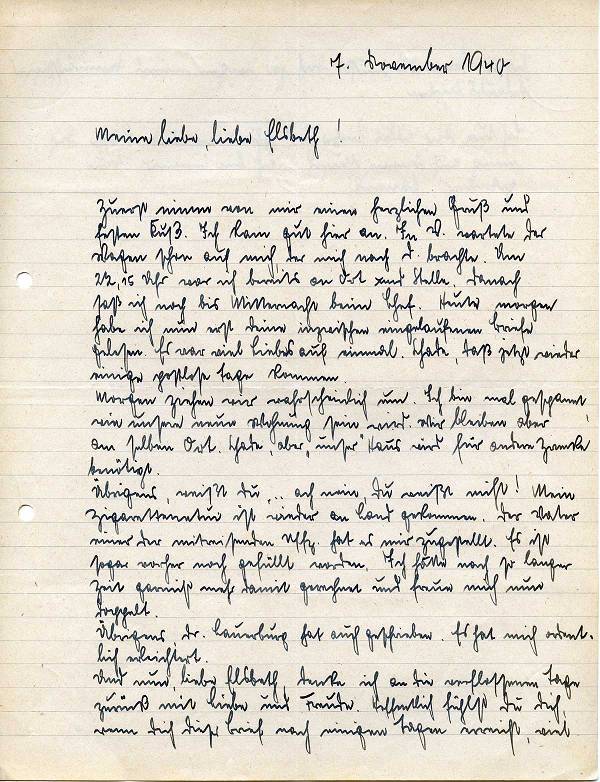 7. November 1940
Meine liebe, liebe Elsbeth!
Zuerst nimm von mir einen herzlichen Gruß und
besten Kuß. Ich kam gut hier an. In V. wartete der
Wagen schon auf mich, der mich nach d. brachte. Um
22,15 Uhr war ich bereits an Ort und Stelle. Danach
saß ich noch bis Mitternacht beim Chef. Heute morgen
habe ich nun erst deine inzwischen eingelaufenen Briefe
gelesen. Es war viel Liebes auf einmal. Schade, daß jetzt wieder
einige postlose Tage kommen.
Morgen ziehen wir wahrscheinlich um. Ich bin mal gespannt
wie unsere neue Wohnung sein wird. Wir bleiben aber
am selben Ort. Schade, aber „unser" Haus wird für andere Zwecke
benötigt.
Übrigens, weißt du, .. ach nein, du weißt nicht! Mein
Zigarettenetui ist wieder an Land gekommen. Der Vater
einer der mitreisenden Uffz. hat es mir zugestellt. Es ist
sogar vorher noch gefüllt worden. Ich hätte nach so langer
Zeit garnicht mehr damit gerechnet und freue mich nun
doppelt.
Übrigens, Dr. Lauerburg hat auch geschrieben. Es hat mich ordent-
lich erleichtert.
Und nun, liebe Elsbeth, denke ich an die verflossenen Tage
zurück mit Liebe und Freude. Hoffentlich fühlst du dich
wenn dich dieser Brief nach einigen Tagen erreicht, viel